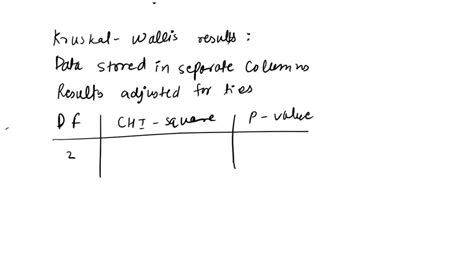 Kruskal-Wallis results:
Data stored in separate columns
Results adjusted for ties
Df CHI-square P-value
2